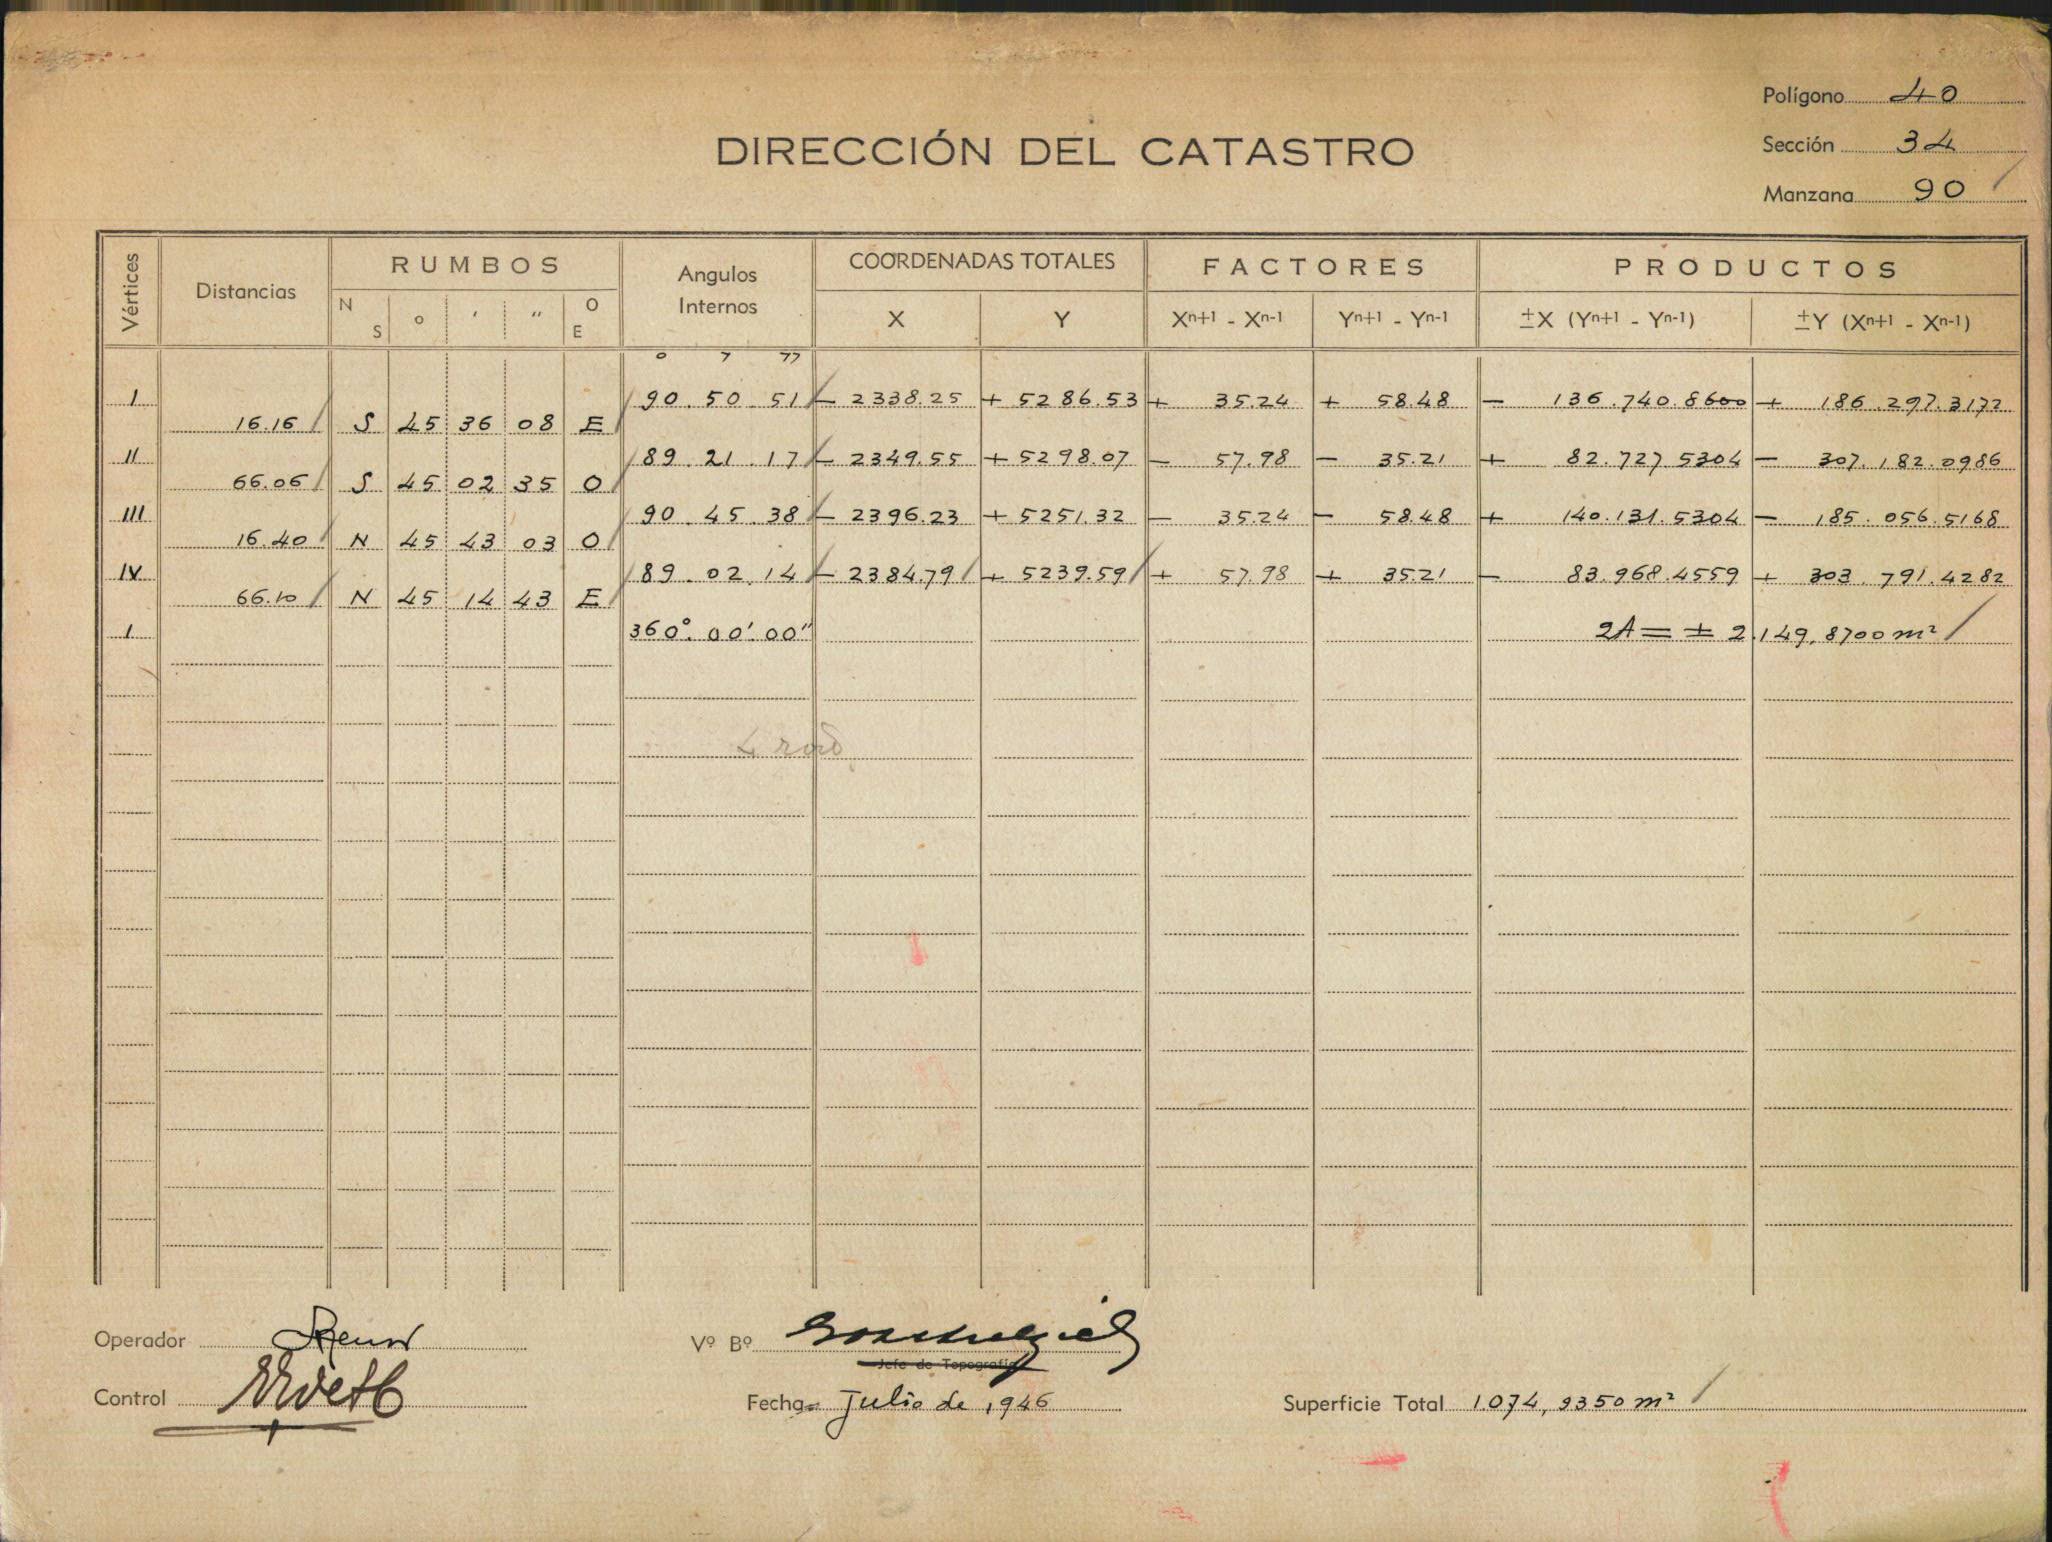 Polígono 40
DIRECCIÓN DEL CATASTRO
Sección 34
Manzana 90
Vértices Distancias RUMBOS Angulos Internos COORDENADAS TOTALES FACTORES PRODUCTOS
N S o ' " O E X Y Xn+1 - Xn-1 Yn+1 - Yn-1 ±X (Yn+1 - Yn-1) ±Y (Xn+1 - Xn-1)
o ' "
I 90. 50. 51 - 2338.25 + 5286.53 + 35.24 + 58.48 - 136.740.8600 + 186.297.3172
16.16 S 45 36 08 E
II 89. 21. 17 - 2349.55 + 5298.07 - 57.98 - 35.21 + 82.727 5304 - 307.182.0986
66.06 S 45 02 35 O
III 90. 45. 38 - 2396.23 + 5251.32 - 35.24 - 58.48 + 140.131.5304 - 185.056.5168
16.40 N 45 43 03 O
IV 89. 02. 14 - 2384.79 + 5239.59 + 57.98 + 35.21 - 83.968.4559 + 303.791.4282
66.10 N 45 14 43 E
I 360°. 00'. 00" 2A = ± 2.149,8700 m²
Operador
Vº Bº
Jefe de Topografía
Control
Fecha Julio de 1946
Superficie Total 1074,9350 m²